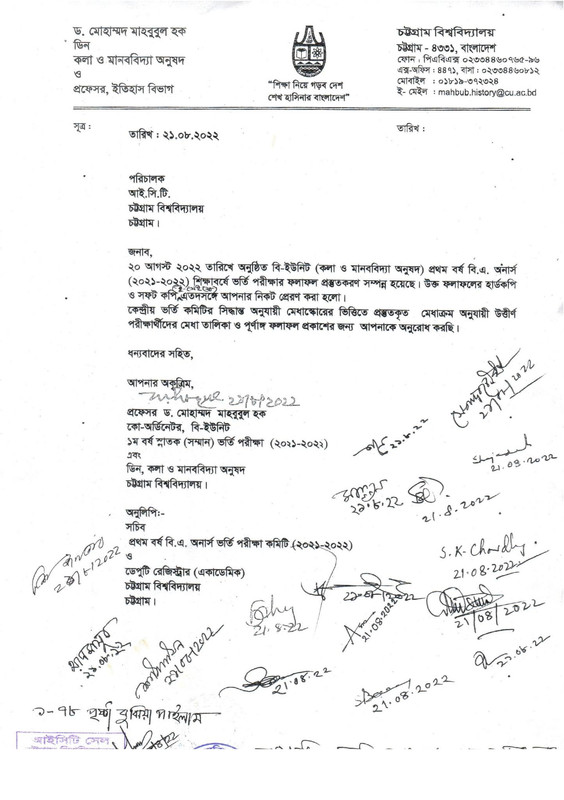 ড. মোহাম্মদ মাহবুবুল হক
ডিন
কলা ও মানববিদ্যা অনুষদ
ও
প্রফেসর, ইতিহাস বিভাগ
"শিক্ষা নিয়ে গড়ব দেশ
শেখ হাসিনার বাংলাদেশ"
চট্টগ্রাম বিশ্ববিদ্যালয়
চট্টগ্রাম - ৪৩৩১, বাংলাদেশ
ফোন : পিএবিএক্স ০২৩৩৪৪৬০৭৬৫-৯৬
এক্স-অফিস : ৪৪৭১, বাসা : ০২৩৩৪৪৬০৮১২
মোবাইল : ০১৮১৯-৩৭২৩২৪
ই- মেইল : mahbub.history@cu.ac.bd
সূত্র :
তারিখ : ২১.০৮.২০২২
তারিখ :
পরিচালক
আই.সি.টি.
চট্টগ্রাম বিশ্ববিদ্যালয়
চট্টগ্রাম।
জনাব,
২০ আগস্ট ২০২২ তারিখে অনুষ্ঠিত বি-ইউনিট (কলা ও মানববিদ্যা অনুষদ) প্রথম বর্ষ বি.এ. অনার্স
(২০২১-২০২২) শিক্ষাবর্ষে ভর্তি পরীক্ষার ফলাফল প্রস্তুতকরণ সম্পন্ন হয়েছে। উক্ত ফলাফলের হার্ডকপি
ও সফট কপি এতদসঙ্গে আপনার নিকট প্রেরণ করা হলো।
কেন্দ্রীয় ভর্তি কমিটির সিদ্ধান্ত অনুযায়ী মেধাস্কোরের ভিত্তিতে প্রস্তুতকৃত মেধাক্রম অনুযায়ী উত্তীর্ণ
পরীক্ষার্থীদের মেধা তালিকা ও পূর্ণাঙ্গ ফলাফল প্রকাশের জন্য আপনাকে অনুরোধ করছি।
ধন্যবাদের সহিত,
আপনার অকৃত্রিম,
২১/০৮/২০২২
প্রফেসর ড. মোহাম্মদ মাহবুবুল হক
কো-অর্ডিনেটর, বি-ইউনিট
১ম বর্ষ স্নাতক (সম্মান) ভর্তি পরীক্ষা (২০২১-২০২২)
এবং
ডিন, কলা ও মানববিদ্যা অনুষদ
চট্টগ্রাম বিশ্ববিদ্যালয়।
২১.৮.২২
21.08.2022
২১.৮.২২
21.8.2022
অনুলিপি:-
সচিব
প্রথম বর্ষ বি.এ. অনার্স ভর্তি পরীক্ষা কমিটি (২০২১-২০২২)
ও
ডেপুটি রেজিস্ট্রার (একাডেমিক)
চট্টগ্রাম বিশ্ববিদ্যালয়
চট্টগ্রাম।
S. K. Chowdhy
21.08.2022
21.8.22
21.08.2022
21/08/2022
২১.০৮.২২
21.08.2022
21.08.2022
১-৭৮ পৃষ্ঠা বুঝিয়া পাইলাম
আইসিটি সেল